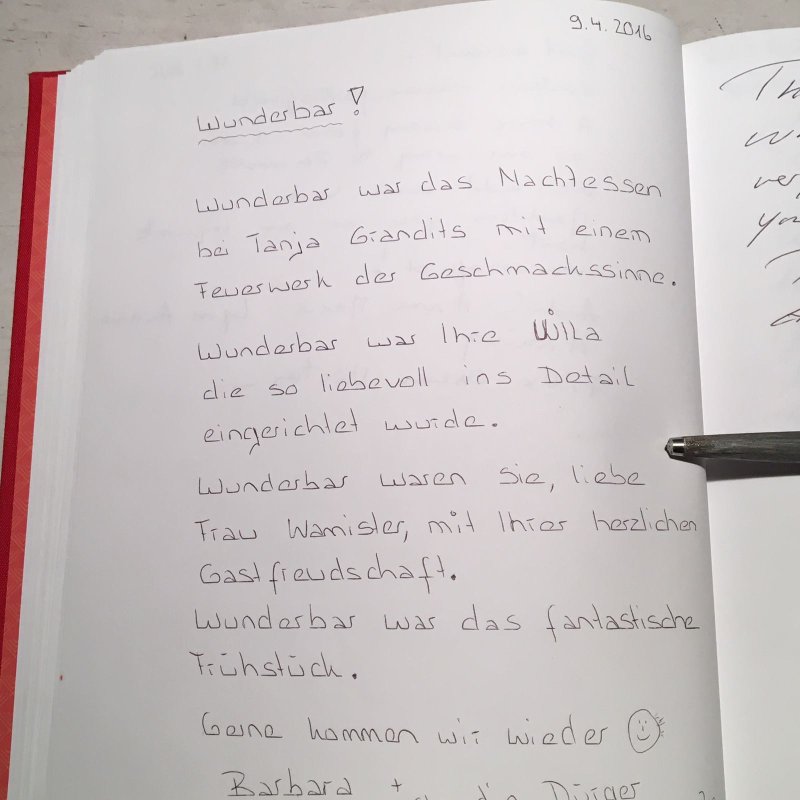 9.4.2016
Wunderbar!
Wunderbar war das Nachtessen
bei Tanja Grandits mit einem
Feuerwerk der Geschmackssinne.
Wunderbar war Ihre Wila
die so liebevoll ins Detail
eingerichtet wurde.
Wunderbar waren Sie, liebe
Frau Wamister, mit Ihrer herzlichen
Gastfreudschaft.
Wunderbar war das fantastische
Frühstück.
Gerne kommen wir wieder
Barbara +